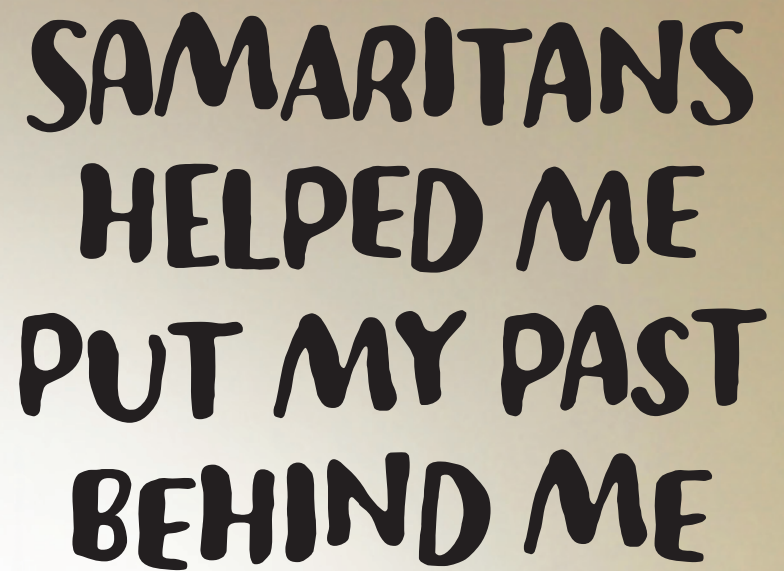 SAMARITANS
HELPED ME
PUT MY PAST
BEHIND ME